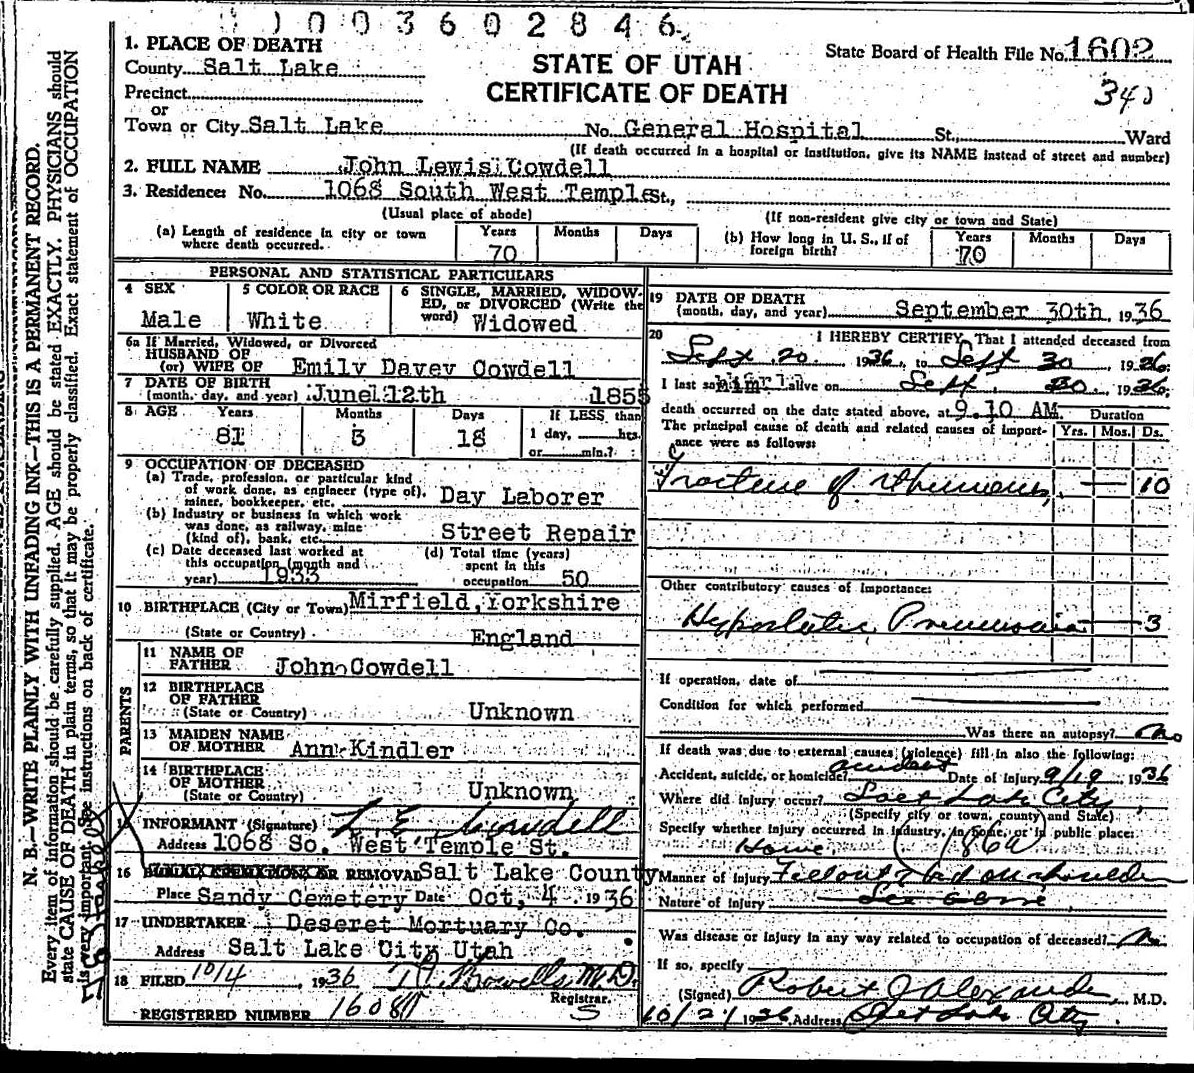 1003602846
1. PLACE OF DEATH
County Salt Lake
STATE OF UTAH
CERTIFICATE OF DEATH
State Board of Health File No. 1602
340
Precinct
or
Town or City Salt Lake No. General Hospital St., Ward
(If death occurred in a hospital or institution, give its NAME instead of street and number)
2. FULL NAME John Lewis Cowdell
3. Residence: No. 1068 South West Temple St.,
(Usual place of abode) (If non-resident give city or town and State)
(a) Length of residence in city or town where death occurred. Years 70 Months Days
(b) How long in U. S., if of foreign birth? Years 70 Months Days
PERSONAL AND STATISTICAL PARTICULARS
4 SEX Male
5 COLOR OR RACE White
6 SINGLE, MARRIED, WIDOWED, or DIVORCED (Write the word) Widowed
6a If Married, Widowed, or Divorced
HUSBAND OF
(or) WIFE OF Emily Davey Cowdell
7 DATE OF BIRTH
(month, day, and year) June 12th 1855
8 AGE Years 81 Months 3 Days 18 If LESS than 1 day, hrs. or min.?
9 OCCUPATION OF DECEASED
(a) Trade, profession, or particular kind of work done, as engineer (type of), miner, bookkeeper, etc. Day Laborer
(b) Industry or business in which work was done, as railway, mine (kind of), bank, etc. Street Repair
(c) Date deceased last worked at this occupation (month and year) 1933
(d) Total time (years) spent in this occupation 50
10 BIRTHPLACE (City or Town) Mirfield, Yorkshire
(State or Country) England
PARENTS
11 NAME OF FATHER John Cowdell
12 BIRTHPLACE OF FATHER
(State or Country) Unknown
13 MAIDEN NAME OF MOTHER Ann Kindler
14 BIRTHPLACE OF MOTHER
(State or Country) Unknown
INFORMANT (Signature) L. E. Cowdell
Address 1068 So. West Temple St.
16 OR REMOVAL Salt Lake County
Place Sandy Cemetery Date Oct, 4 1936
17 UNDERTAKER Deseret Mortuary Co.
Address Salt Lake City Utah
18 FILED 10/4, 1936 M.D.
Registrar.
REGISTERED NUMBER
19 DATE OF DEATH
(month, day, and year) September 30th, 1936
20 I HEREBY CERTIFY, That I attended deceased from
Sept 20 1936, to Sept 30, 1936;
I last saw him alive on Sept. 30, 1936;
death occurred on the date stated above, at 9.10 AM. Duration
The principal cause of death and related causes of importance were as follows: Yrs. Mos. Ds.
Fracture of Humerus, 10
Other contributory causes of importance:
Hypostatic Pneumonia 3
If operation, date of
Condition for which performed
Was there an autopsy? No
If death was due to external causes (violence) fill in also the following:
Accident, suicide, or homicide? accident Date of Injury 9/19 1936
Where did injury occur? Salt Lake City
(Specify city or town, county and State)
Specify whether injury occurred in industry, in home, or in public place:
Home. (186a
Manner of Injury Fell out of bed on shoulder
Nature of Injury See above
Was disease or injury in any way related to occupation of deceased? No
If so, specify
(Signed) Robert J Alexander, M.D.
10/2/1936 Address Salt Lake City.
N. B.—WRITE PLAINLY WITH UNFADING INK—THIS IS A PERMANENT RECORD.
Every item of information should be carefully supplied. AGE should be stated EXACTLY. PHYSICIANS should
state CAUSE OF DEATH in plain terms, so that it may be properly classified. Exact statement of OCCUPATION
is very important. See instructions on back of certificate.